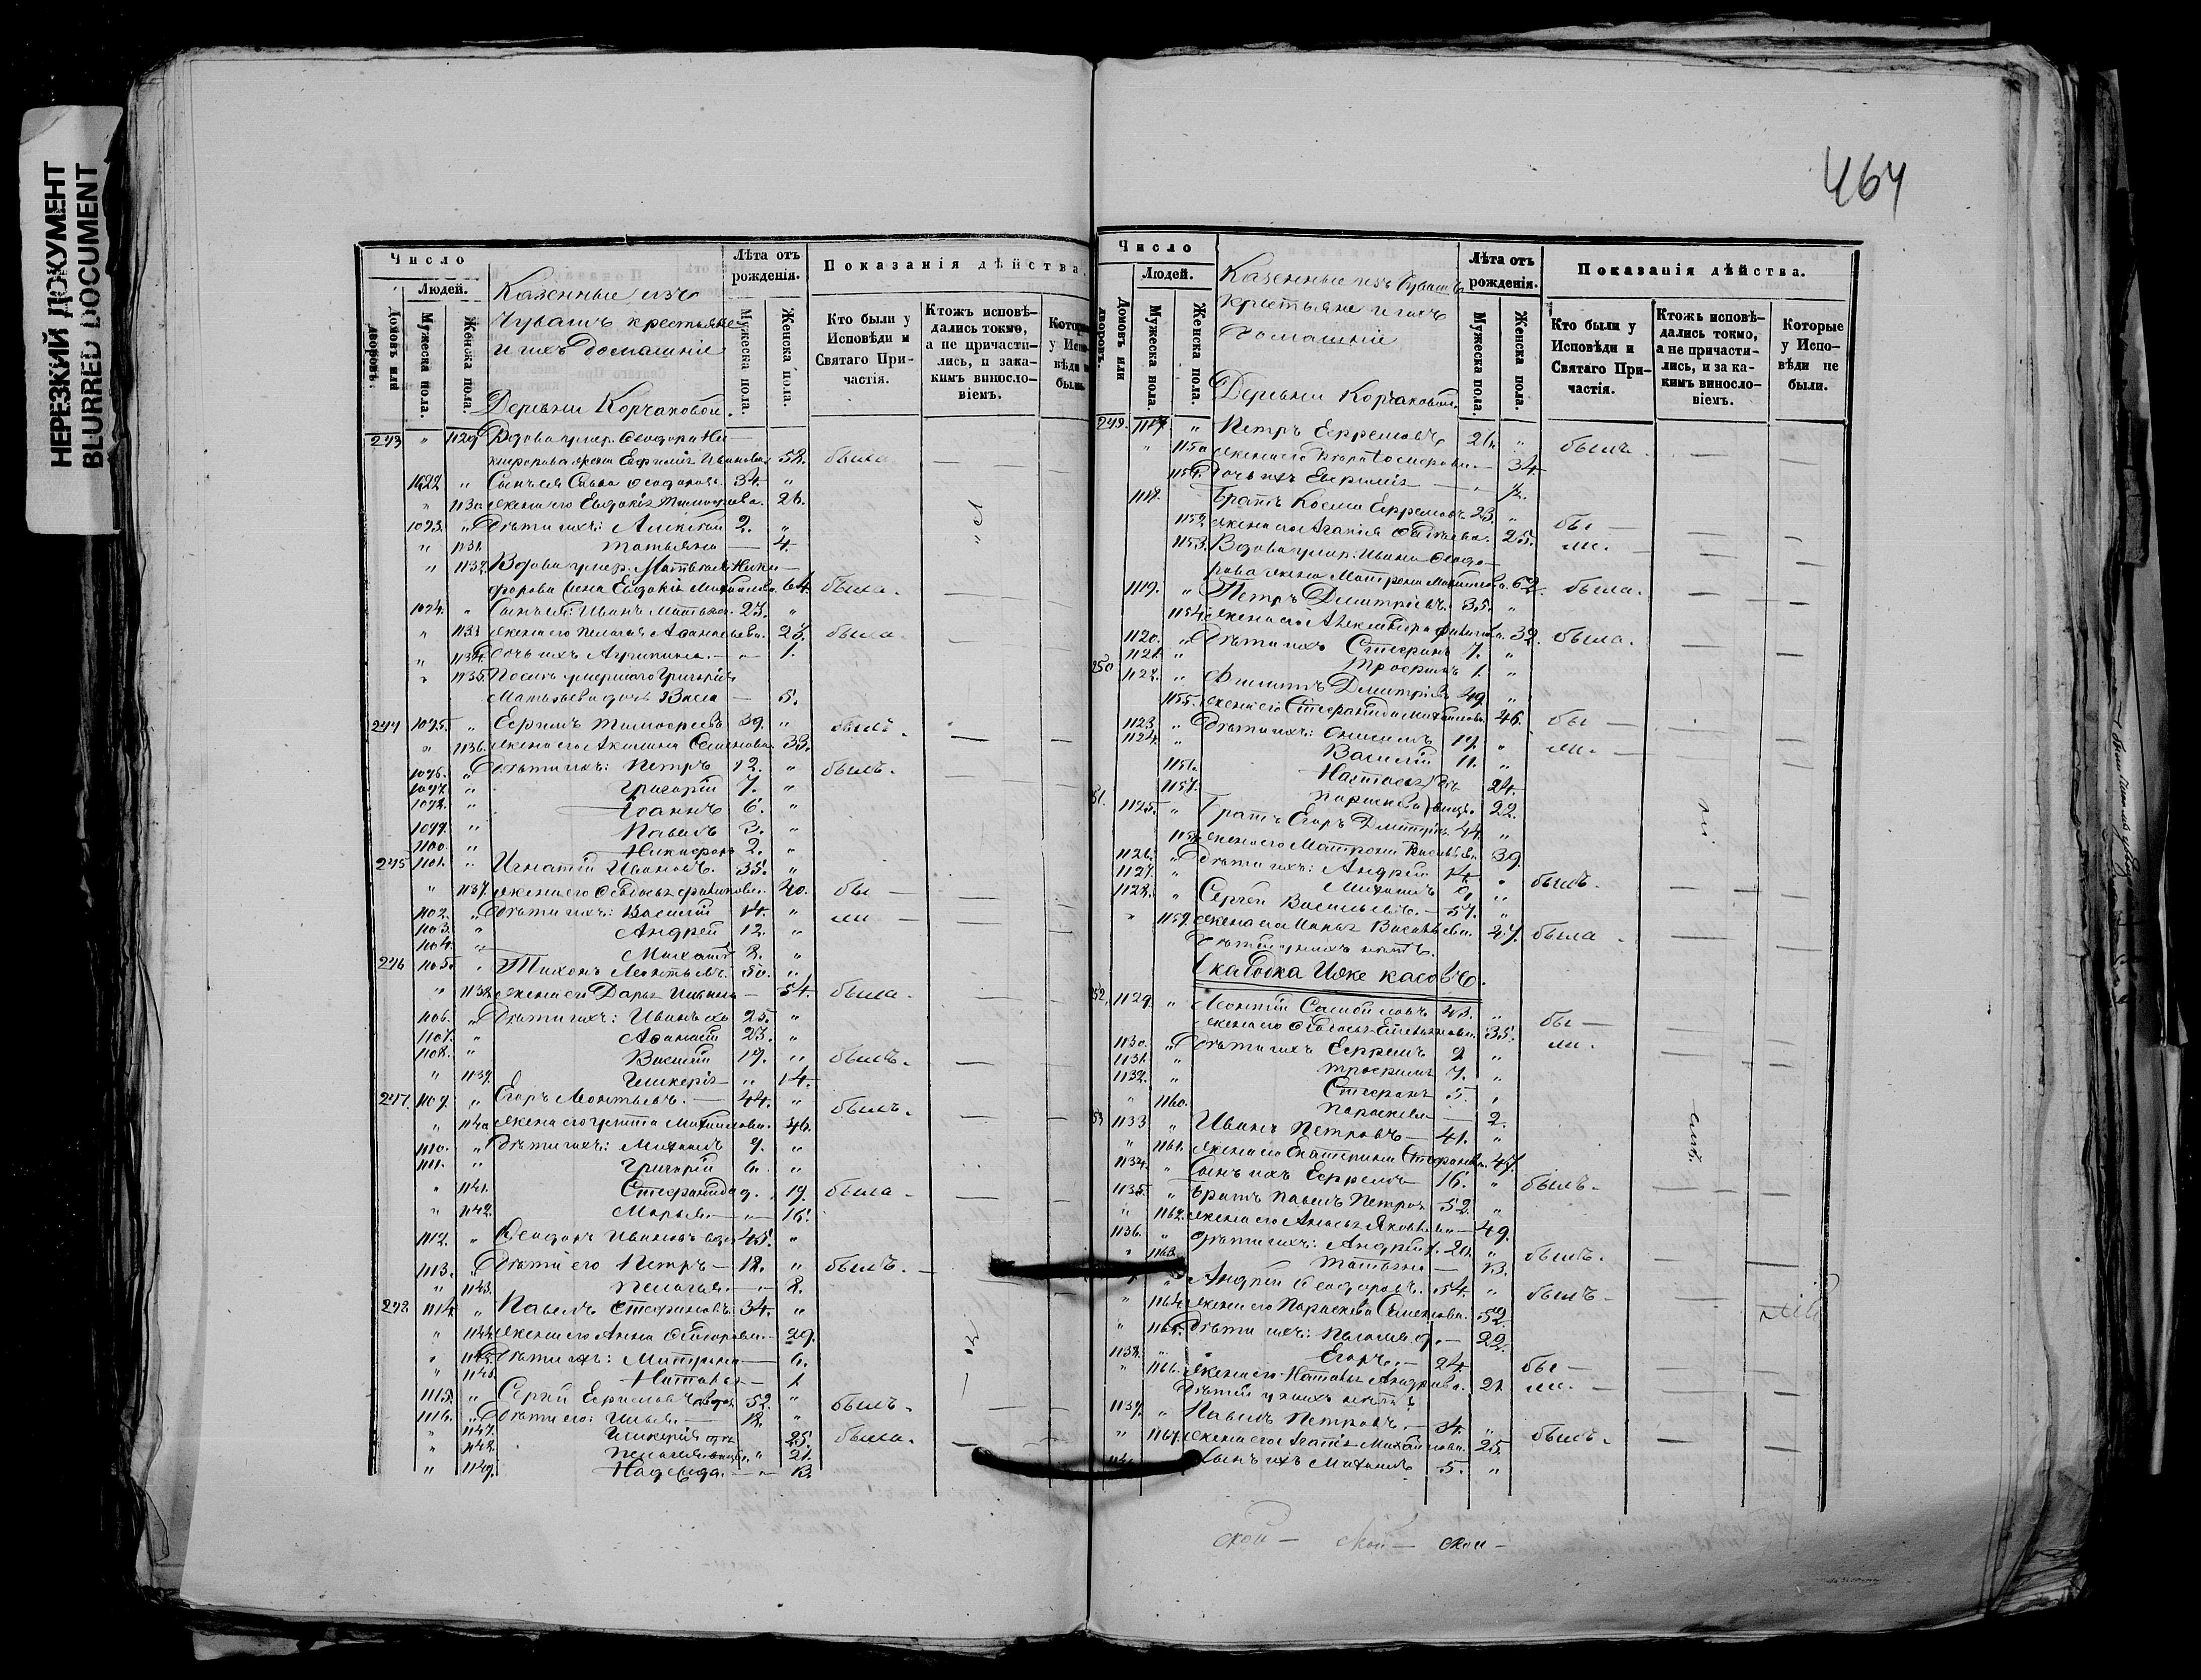 НЕРЕЗКИЙ ДОКУМЕНТ
BLURRED DOCUMENT
464
Число
Людей.
Домовъ или дворовъ.
Мужеска пола.
Женска пола.
Казенные изъ
Чувашъ крестьяне
и ихъ домашніе
Деревни Корчаковой.
Лѣта отъ рожденія.
Мужеска пола.
Женска пола.
Показанія дѣйства.
Кто были у Исповѣди и Святаго Причастія.
Ктожъ исповѣдались токмо, а не причастились, и закакимъ винословіемъ.
Которые у Исповѣди не были.
243 " 1129 Вдова умер. Ѳеодора Ни-
кифорова жена Евфимія Иванова 58. была
1092 " Сынъ ея Савва Ѳеодоровъ 34. "
" 1130 жена его Евдокія Тимофеева. 26.
1093. " Дѣти ихъ: Алексѣй 2. "
" 1131. Татьяна — 4.
" 1132. Вдова умер. Матвѣя Ники-
форова жена Евдокія Михайлова 64. была.
1094. " Сынъ ея: Иванъ Матвѣевъ 23. "
" 1133 жена его Пелагея Аѳанасьева. 23. была.
" 1134. Дочь ихъ Агрипина. — " 1.
" 1135. Послѣ умершаго Григорія
Матвѣева дочь Васса — 5.
244 1095. " Ефимъ Тимофеевъ 39. "
" 1136. жена его Акилина Семенова 38.
1096. " Дѣти ихъ: Петръ 12. " былъ.
1097. " Григорій 7. "
1098. " Іоаннъ 6. "
1099. " Павелъ 3. "
1100. " Никифоръ 2. "
245 1101. " Игнатій Ивановъ. 35. "
" 1137. жена его Ѳедосья Филипова. 40. бы —
1102. " Дѣти ихъ: Василій 14. " ли —
1103. " Андрей 12. "
1104. " Михаилъ 8. "
246 1105. " Тихонъ Леонтьевъ. 50. "
" 1138. жена его Дарья Ивановa — 54. была.
1106. " Дѣти ихъ: Иванъ 25. "
1107. " Аѳанасій 23. "
1108. " Василій 19. " былъ.
" 1139. Гликерія — " 14.
247. 1109. " Егоръ Леонтьевъ. — 44. " былъ.
" 1140 жена его Михайлова. 46.
1110. " Дѣти ихъ: Михаилъ 9. "
1111. " Григорій 6. "
" 1141. Стефанида 19. была —
" 1142. Марья. — " — 16.
1112. " Ѳеодоръ Ивановъ вдов. 45. "
1113. " Дѣти его Петръ — 18. " былъ. —
" 1143. Пелагея. — " 8.
248 1114. " Павелъ Стефановъ 34. "
" 1144. жена его Анна 29.
" 1145. Дѣти ихъ: Матрона — 6.
" Наталья — 1.
1115. " Сергѣй Ефимовъ вдов. 52. " былъ.
1116. " Дѣти его: Илья. — 18. "
" 1147. Гликерія 25. была.
" 1148. Пелагея " 21.
" 1149. Надежда. — " — 13.
Число
Людей.
Домовъ или дворовъ.
Мужеска пола.
Женска пола.
Казенные изъ Чувашъ
крестьяне и ихъ
домашніе
Деревни Корчаковой.
Лѣта отъ рожденія.
Мужеска пола.
Женска пола.
Показанія дѣйства.
Кто были у Исповѣди и Святаго Причастія.
Ктожъ исповѣдались токмо, а не причастились, и за какимъ винословіемъ.
Которые у Исповѣди не были.
249. 1117 " Петръ Ефремовъ 26. " былъ.
" 1150 жена его — 34.
1151. Дочь ихъ Евфимія — " — 12.
1118. Братъ Косма Ефремовъ 23. " бы —
1152. жена его Агафія 25. ли. —
1153. Вдова умер. Ивана Ѳеодо-
рова жена Матрона 62. была.
1119. " Петръ Димитріевъ. 35. "
1154. жена его Александра 32. была.
1120. " Дѣти ихъ Стефанъ 7. "
1121. " Трофимъ 1. "
250 1122. " Филиппъ Димитріевъ 49. "
1155. жена его Стефанида Михайлова 46. бы —
1123. " Дѣти ихъ: 19. " ли. —
1124. " Василій 11. "
1156. Настасья 24.
1157. Параскева 22.
51. 1125. " Братъ Егоръ Димитріевъ 44. "
1158. жена его Матрона Васильева. 39.
1126. " Дѣти ихъ: Андрей 14. " былъ.
1127. " Михаилъ 9. "
1128. " Сергѣй Васильевъ. — 57. "
" 1159. жена его Марья Васильева. 47. была
Дѣтей у нихъ нѣтъ.
52. 1129. " Леонтій Самойловъ 43. "
жена его Ѳедосья Емельянова. 35. бы —
1130. " Дѣти ихъ Ефремъ 9. " ли. —
1131. " Трофимъ 7. "
1132. " Стефанъ 5. "
" 1160. Параскева — 2.
53 1133 " Иванъ Петровъ — 41. "
" 1161. жена его Екатерина Стефанова. 47.
1134. " Сынъ ихъ Ефремъ 16. " былъ.
1135. " Братъ Павелъ Петровъ 52. "
" 1162. жена его Анастасья Яковлева — 49.
1136. " Дѣти ихъ: Андрей 20. " былъ.
" 1163. Татьяна — 13.
" Андрей Ѳеодоровъ. 54. " былъ —
" 1164. жена его Параскева Семенова. 52.
" 1165. Дѣти ихъ: Пелагея — 22.
1138. Егоръ. — 24. бы —
" 1166. жена его Наталья Андреева. 21. ли. —
Дѣтей у нихъ нѣтъ.
1139. " Павелъ Петровъ. — 34. " былъ.
" 1167. жена его Агафья Михайлова. 25.
Сынъ ихъ Михаилъ 5. "
ской — ской — ской —